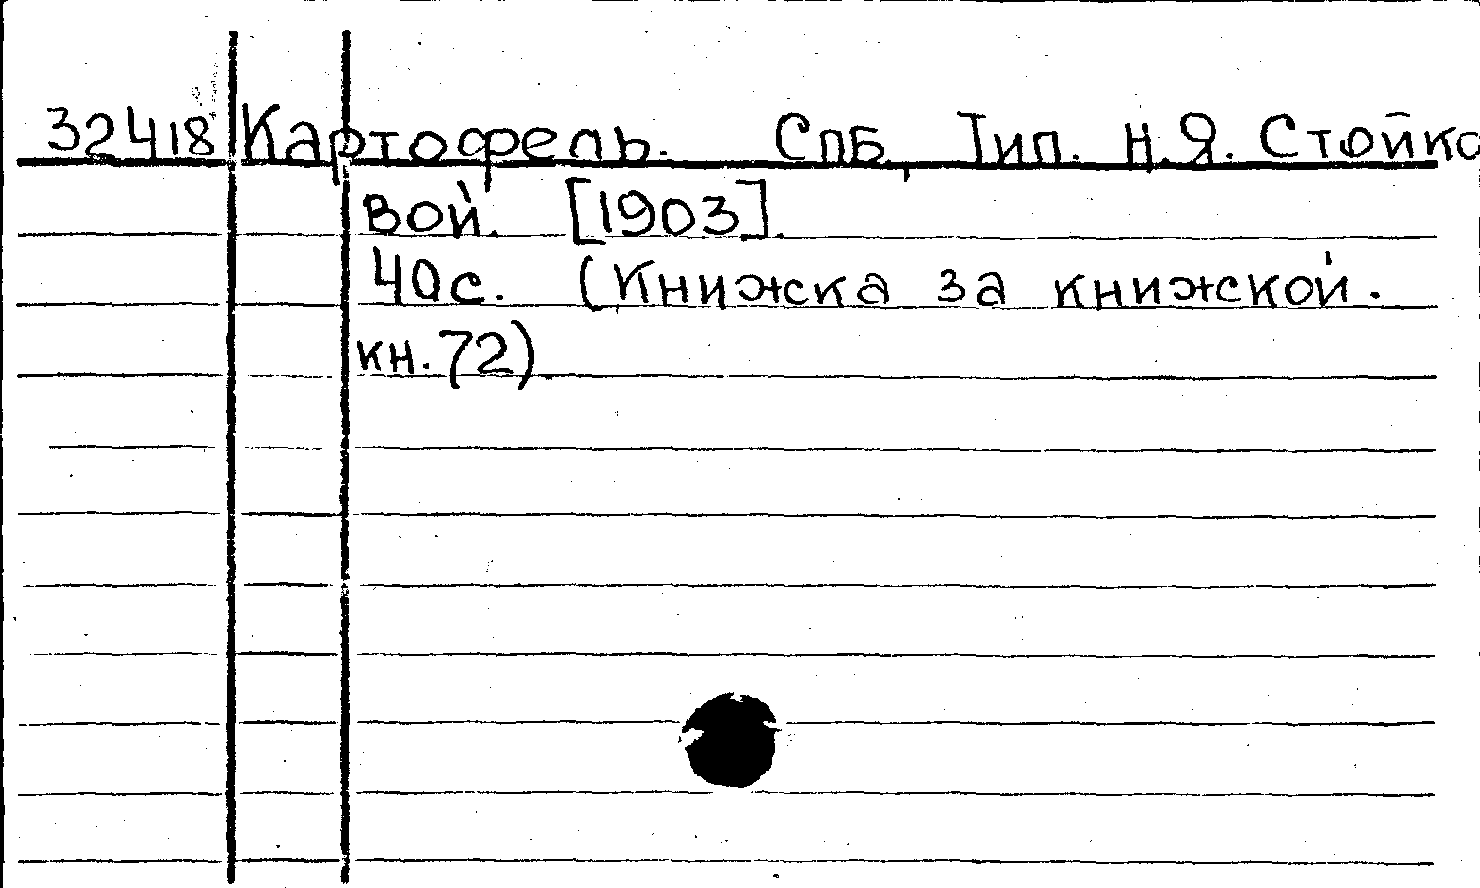 32418 Картофель. Спб, Тип. Н.Я. Стойко
вой. [1903].
40с. (Книжка за книжкой.
кн. 72)